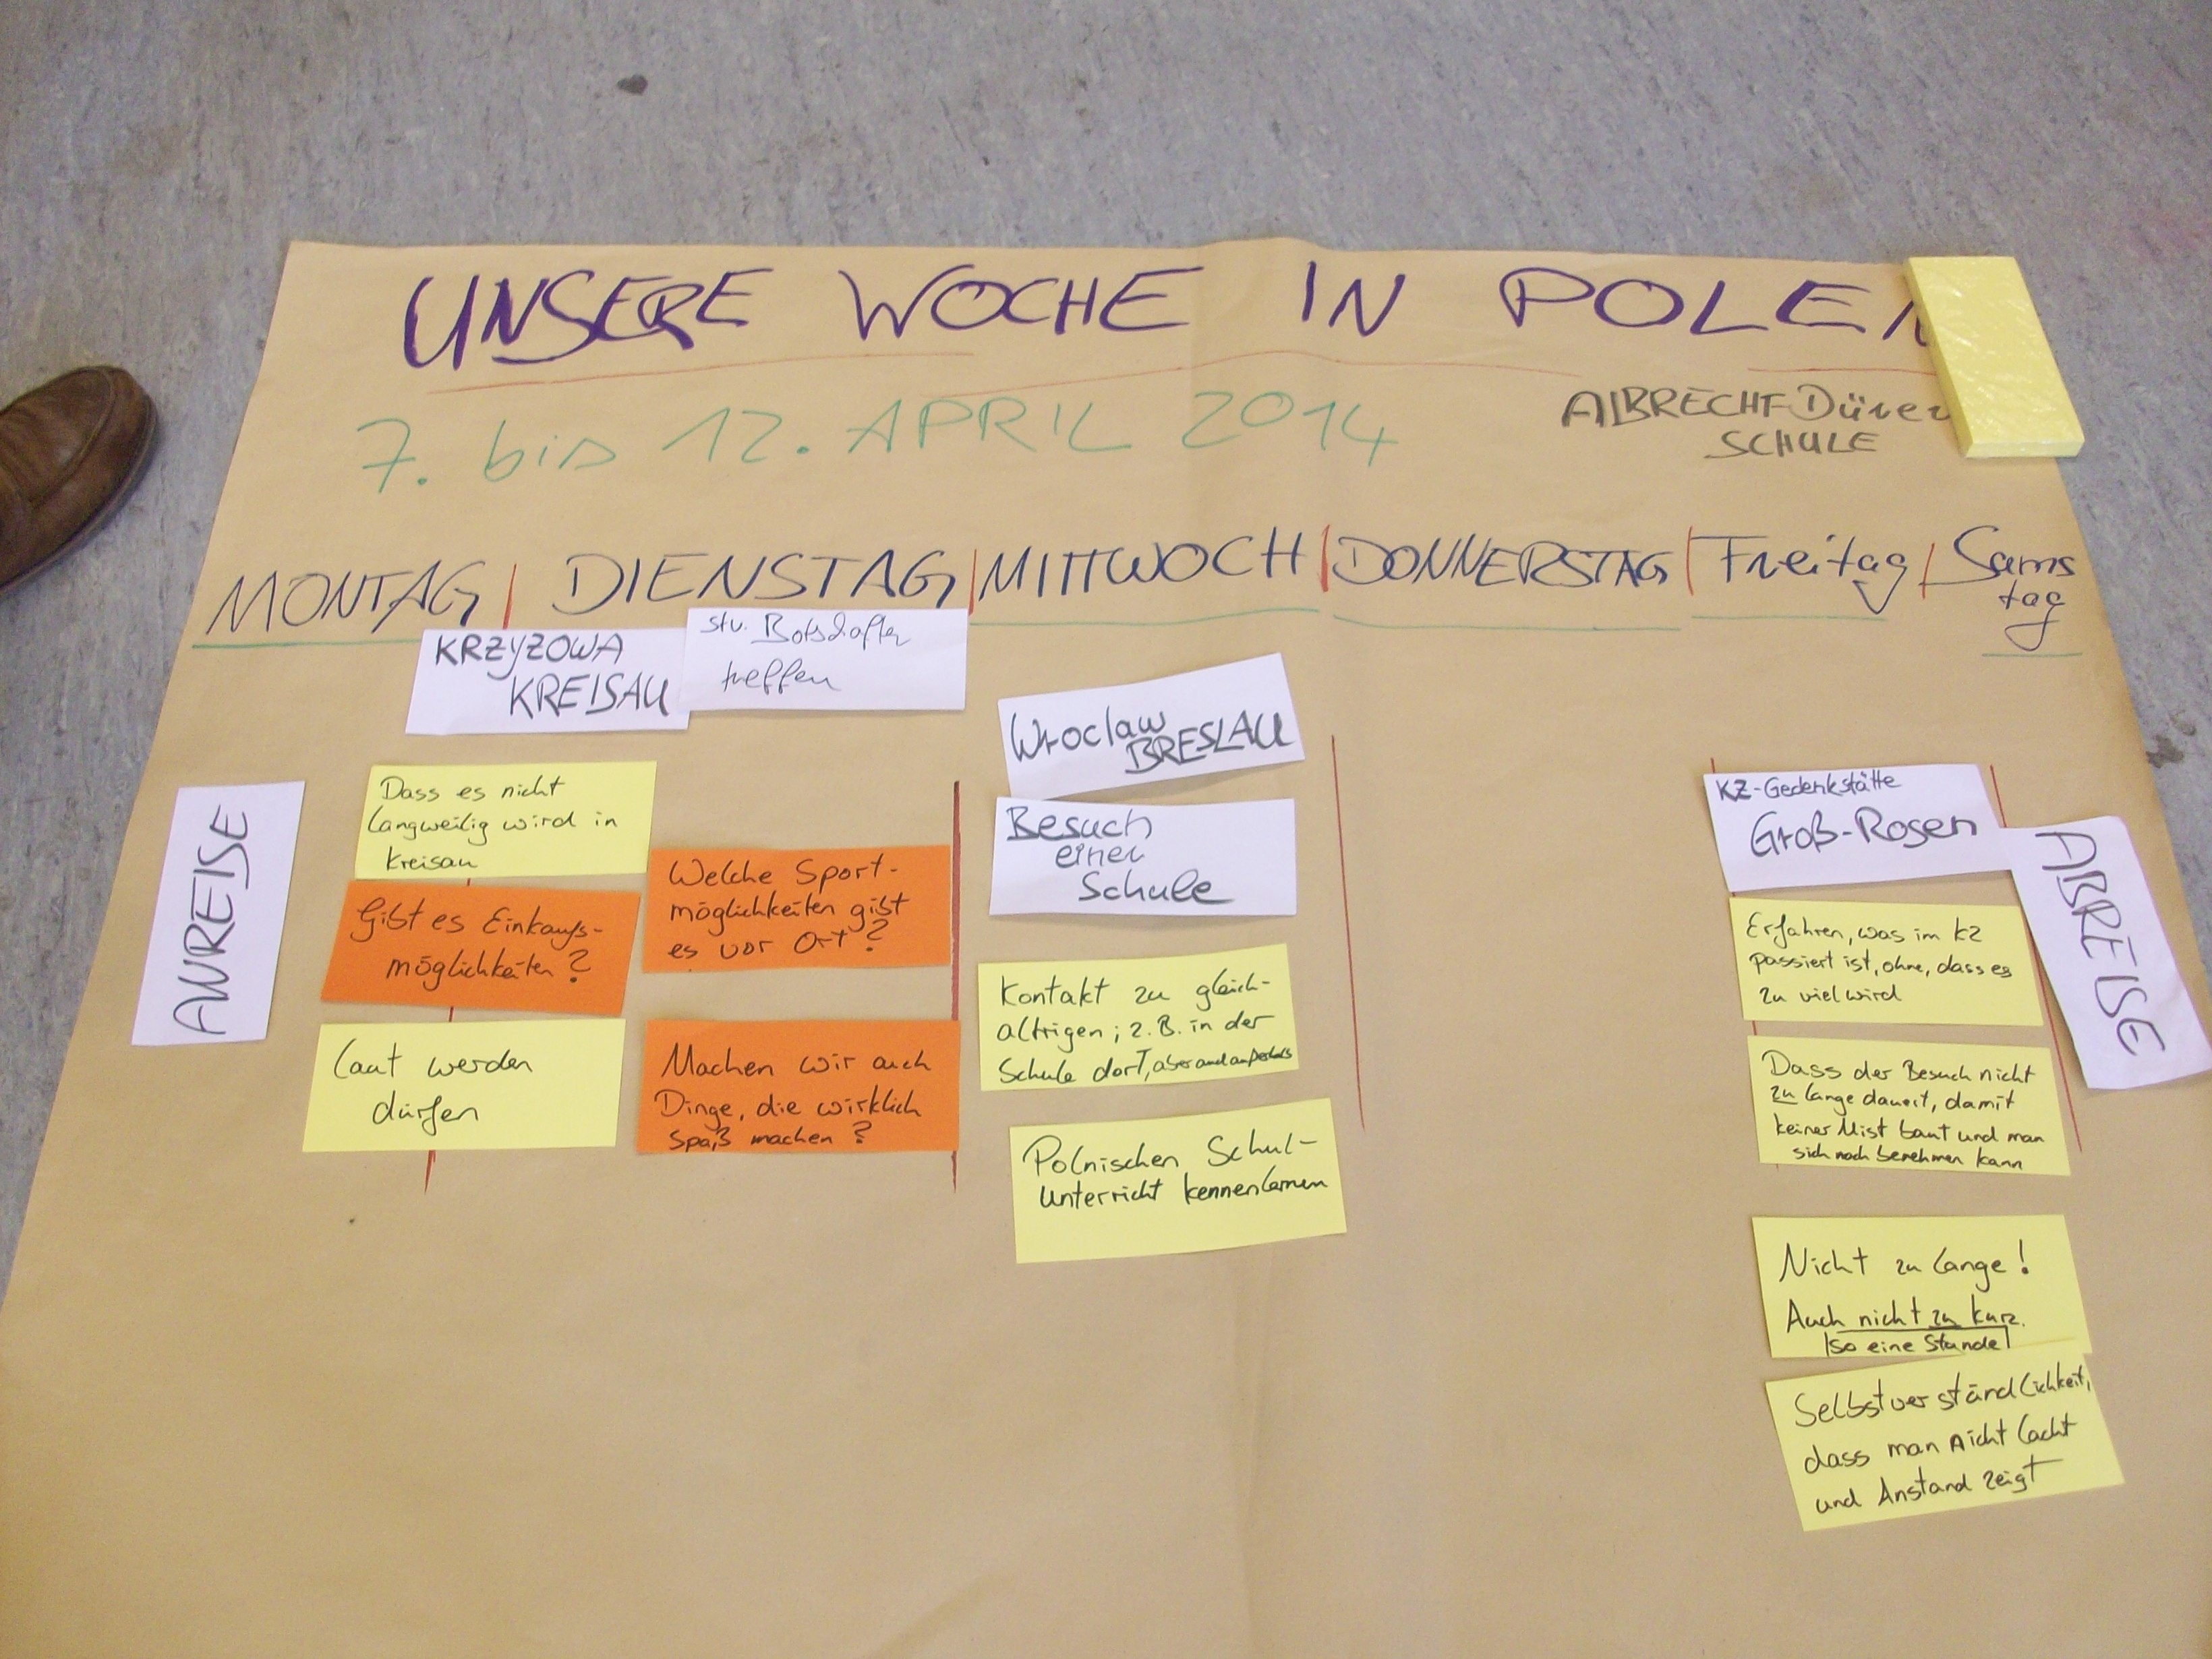 UNSERE WOCHE IN POLEN
7. bis 12. APRIL 2014
ALBRECHT-Dürer
SCHULE
MONTAG | DIENSTAG | MITTWOCH | DONNERSTAG | Freitag | Sams
tag
ANREISE
KRZYZOWA
KREISAU
stv. Botschafter
treffen
Dass es nicht
langweilig wird in
Kreisau
Gibt es Einkaufs-
möglichkeiten?
laut werden
dürfen
Welche Sport-
möglichkeiten gibt
es vor Ort?
Machen wir auch
Dinge, die wirklich
Spaß machen?
Wroclaw
BRESLAU
Besuch
einer
Schule
Kontakt zu gleich-
altrigen; z.B. in der
Schule dort, aber auch außerhalb
Polnischen Schul-
unterricht kennenlernen
KZ-Gedenkstätte
Groß-Rosen
Erfahren, was im KZ
passiert ist, ohne, dass es
zu viel wird
Dass der Besuch nicht
zu lange dauert, damit
keiner Mist baut und man
sich noch benehmen kann
Nicht zu lange!
Auch nicht zu kurz.
|so eine Stunde|
Selbstverständlichkeit,
dass man nicht lacht
und Anstand zeigt
ABREISE